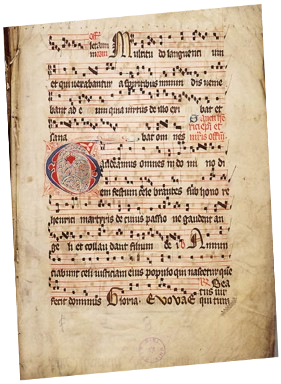 Multitudo languenti um
et qui vexabantur a spiribus inmun dis venie
bant ad e um quia virtus de illo exi bat et
sana bat om nes
Gaudeamus omnes in do mi no di
em festum cele brantes sub hono re
henrici martyris de cuius passio ne gaudent an
ge li et collau dant filium de i Annun
ciabunt celi iusticiam eius populo qui nascetur que
fecit dominus Gloria. E V O V A E Bea
tus vir qui tim